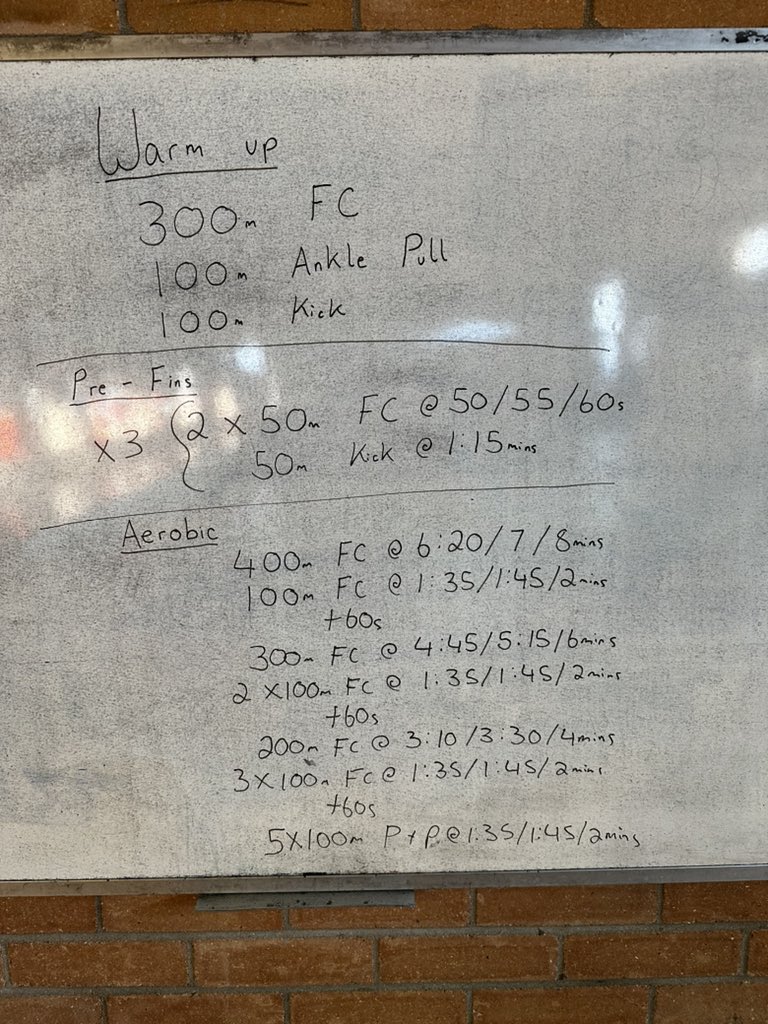 Warm up
300m FC
100m Ankle Pull
100m Kick
Pre - Fins
x3 { 2 x 50m FC @ 50/55/60s
50m Kick @ 1:15mins
Aerobic
400m FC @ 6:20/7/8mins
100m FC @ 1:35/1:45/2mins
+60s
300m FC @ 4:45/5:15/6mins
2 x100m FC @ 1:35/1:45/2mins
+60s
200m FC @ 3:10/3:30/4mins
3x100m FC @ 1:35/1:45/2mins
+60s
5x100m P+P @ 1:35/1:45/2mins